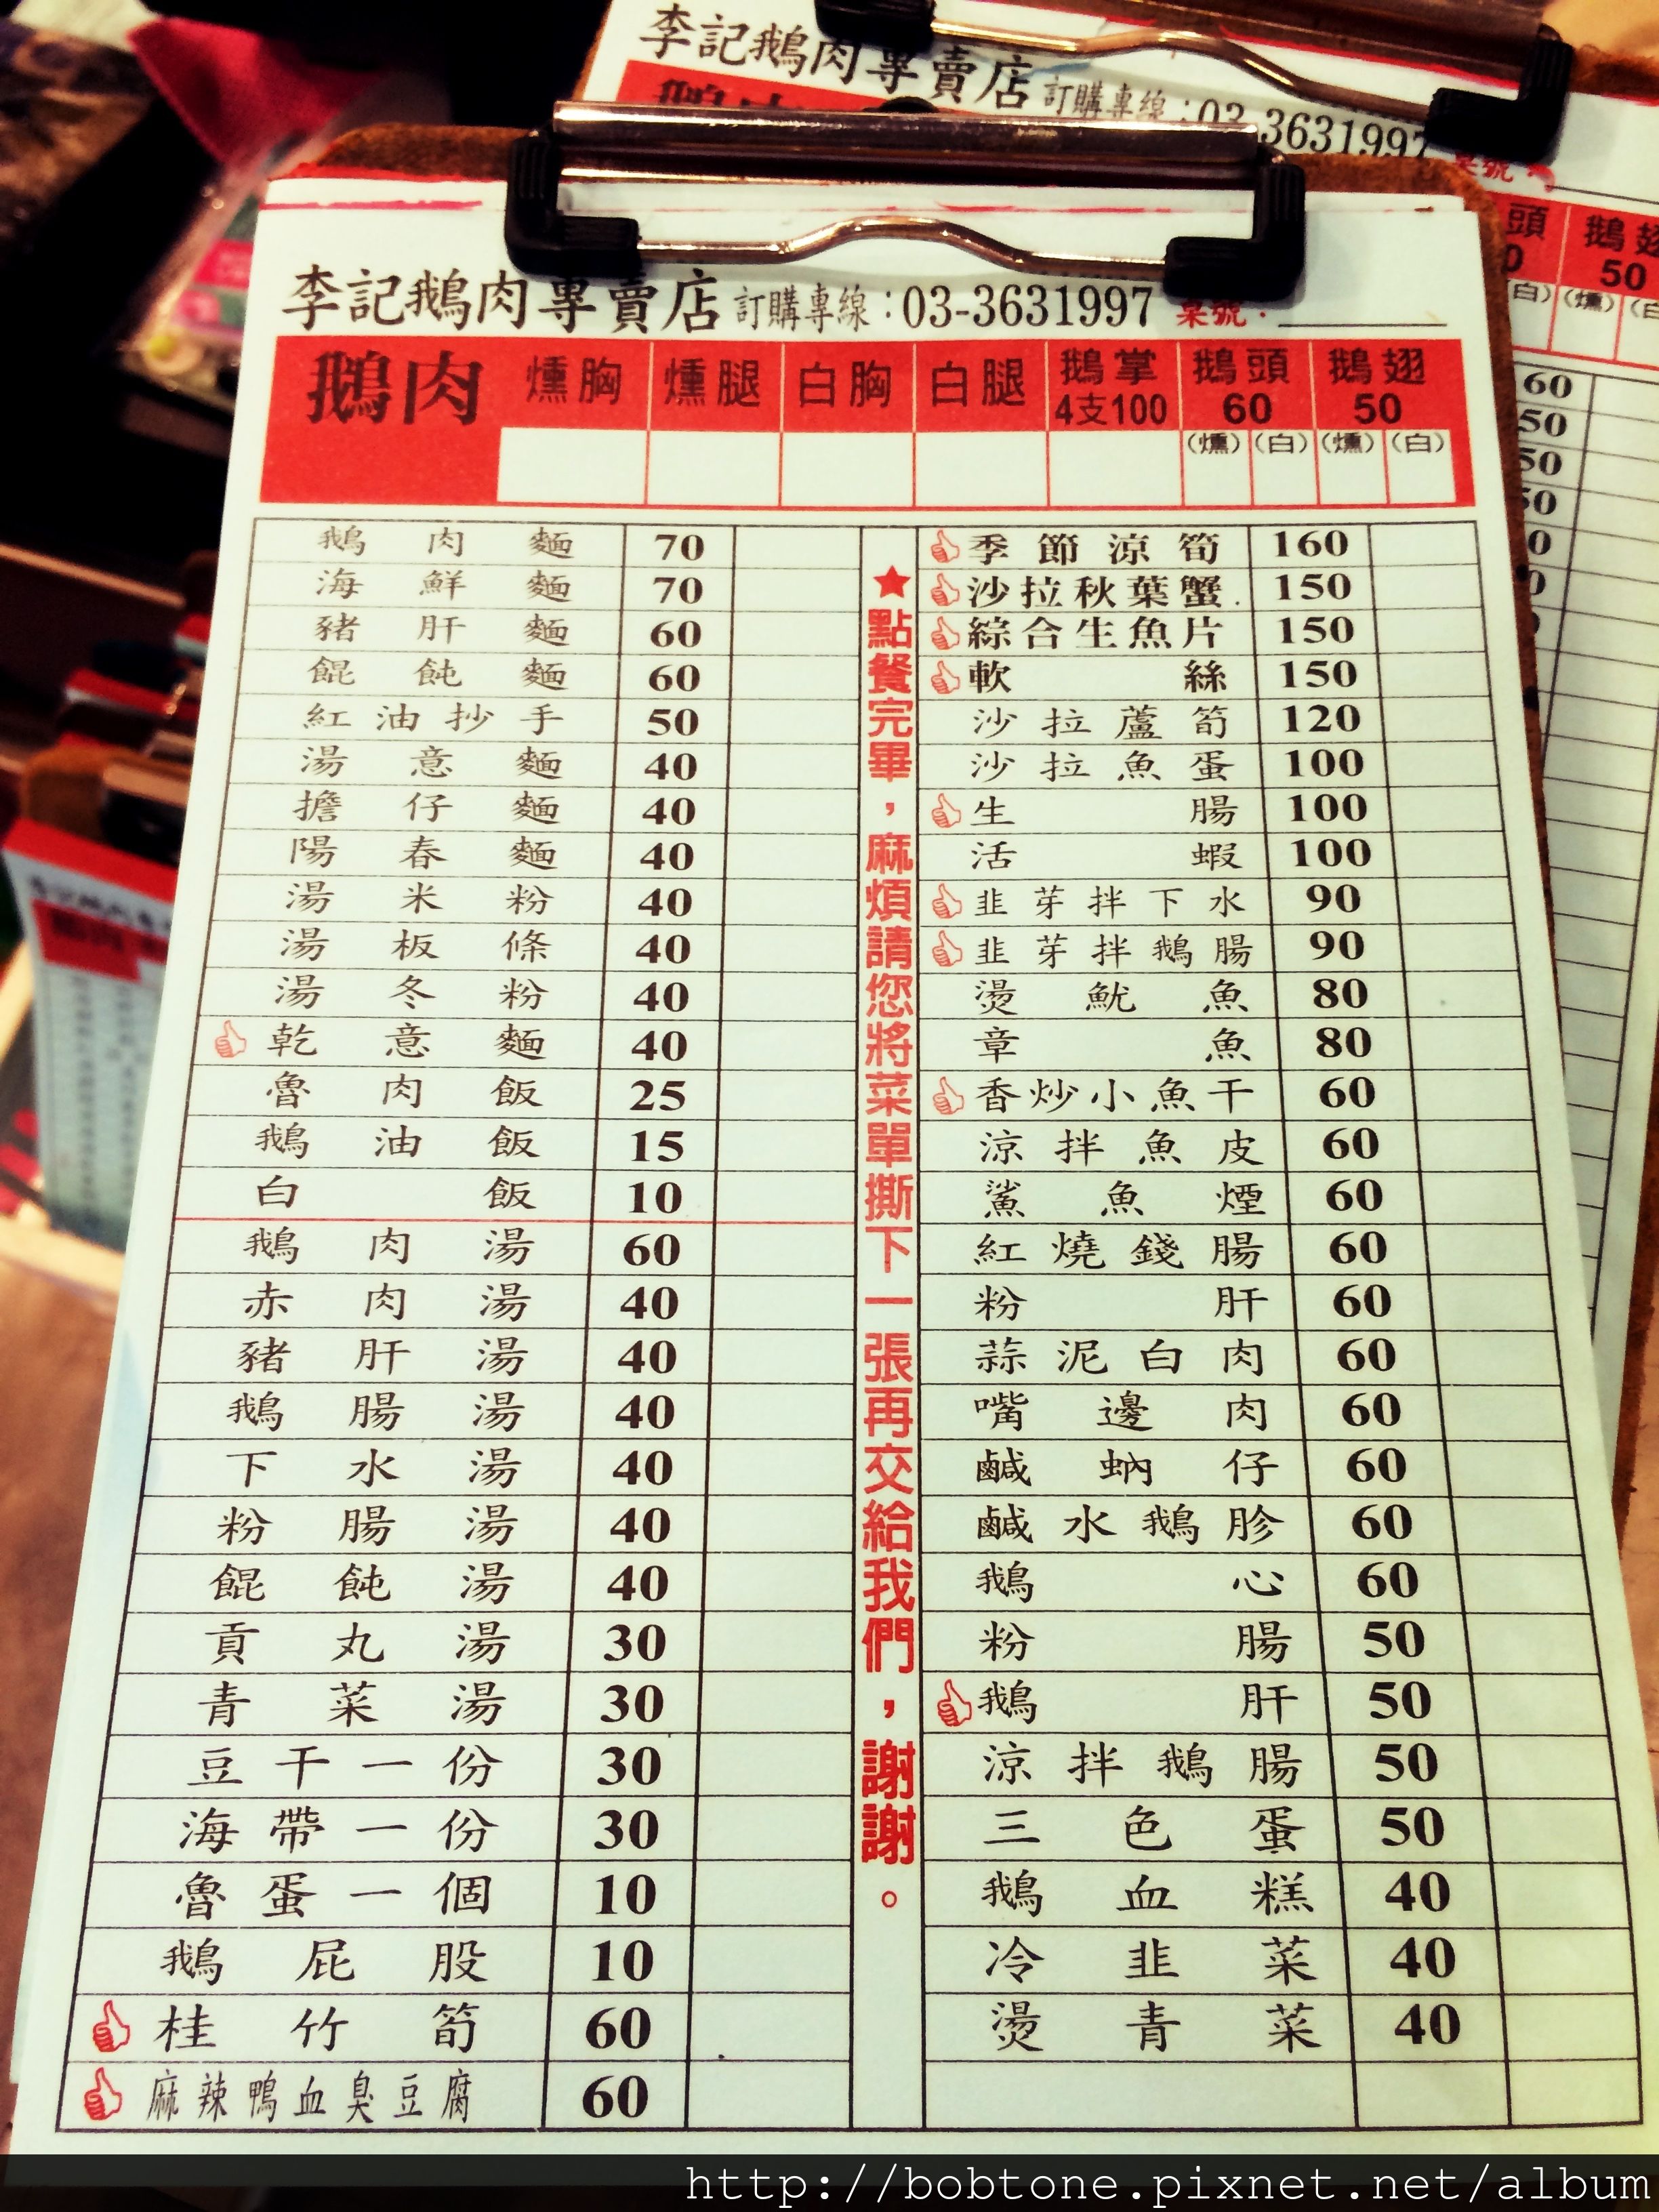 李記鵝肉專賣店 訂購專線：03-3631997
頭 鵝翅
50
(白) (燻)
60
50
李記鵝肉專賣店 訂購專線：03-3631997 桌號：
鵝肉 燻胸 燻腿 白胸 白腿 鵝掌 4支100 鵝頭 60 鵝翅 50
(燻) (白) (燻) (白)
鵝肉麵 70
海鮮麵 70
豬肝麵 60
餛飩麵 60
紅油抄手 50
湯意麵 40
擔仔麵 40
陽春麵 40
湯米粉 40
湯板條 40
湯冬粉 40
乾意麵 40
魯肉飯 25
鵝油飯 15
白飯 10
鵝肉湯 60
赤肉湯 40
豬肝湯 40
鵝腸湯 40
下水湯 40
粉腸湯 40
餛飩湯 40
貢丸湯 30
青菜湯 30
豆干一份 30
海帶一份 30
魯蛋一個 10
鵝屁股 10
桂竹筍 60
麻辣鴨血臭豆腐 60
★點餐完畢，麻煩請您將菜單撕下一張再交給我們，謝謝。
季節涼筍 160
沙拉秋葉蟹 150
綜合生魚片 150
軟絲 150
沙拉蘆筍 120
沙拉魚蛋 100
生腸 100
活蝦 100
韭芽拌下水 90
韭芽拌鵝腸 90
燙魷魚 80
章魚 80
香炒小魚干 60
涼拌魚皮 60
鯊魚煙 60
紅燒錢腸 60
粉肝 60
蒜泥白肉 60
嘴邊肉 60
鹹蚋仔 60
鹹水鵝胗 60
鵝心 60
粉腸 50
鵝肝 50
涼拌鵝腸 50
三色蛋 50
鵝血糕 40
冷韭菜 40
燙青菜 40
http://bobtone.pixnet.net/album